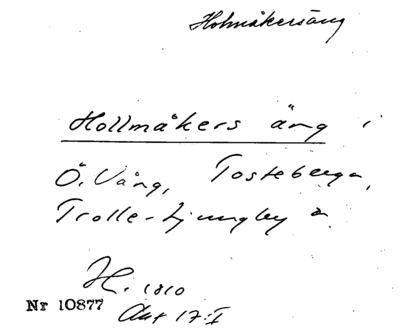 Holmåkersäng
Hollmåkers äng i
Ö. Vång, Tosteberga,
Trolle-Ljungby
H. 1810
Nr 10877 Akt 17:I